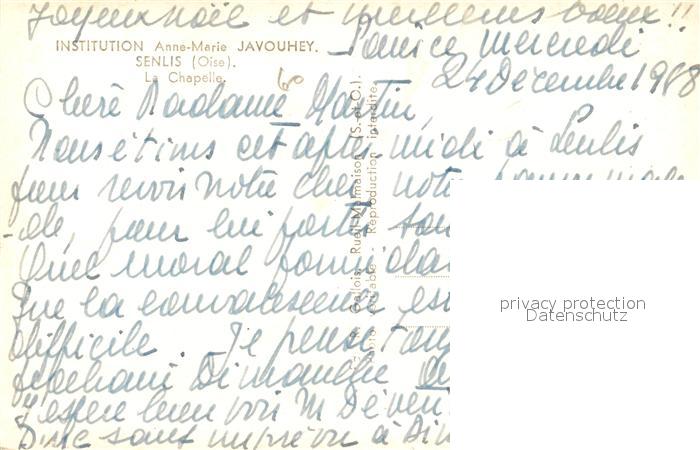 Joyeux Noël et meilleurs voeux!!
INSTITUTION Anne-Marie JAVOUHEY.
SENLIS (Oise).
La Chapelle.
mercredi
24 Décembre 1968
Chère Madame Martin,
Nous étions cet après midi à Senlis
pour revoir notre cher, notre
pour lui porter son
Quel moral formidable
Que la convalescence est
difficile. Je pense
prochain Dimanche
J'espère bien voir M
Donc sauf imprévu à
Gallois, Rueil-Malmaison (S.-et-O.).
Reproduction interdite.
privacy protection
Datenschutz